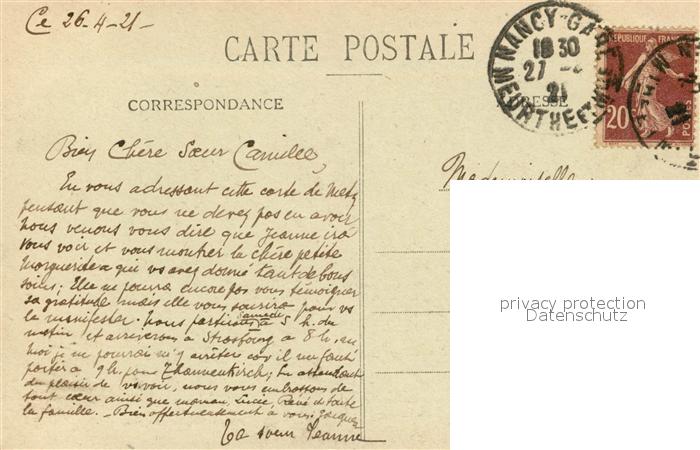 Ce 26-4-21-
CARTE POSTALE
NANCY-GARE
18 30
27 -4
21
MEURTHE ET M
RÉPUBLIQUE FRANÇAISE
20
POSTES
CORRESPONDANCE
ADRESSE
Bien Chère Sœur Camille,
En vous adressant cette carte de Metz
pensant que vous ne devez pas en avoir
nous venons vous dire que Jeanne ira
vous voir et vous montrer la chère petite
Marguerite a qui vs avez donné tant de bons
soins; Elle ne pourra encore pas vous témoigner
sa gratitude mais elle vous sourira pour vs
le manifester. Nous partirons Samedi à 5 h. du
matin et arriverons à Strasbourg à 8 h.
moi je ne pourrai m'y arrêter car il me faut
partir à 9 h. pour ; En attendant
du plaisir de vs voir, nous vous embrassons de
tout cœur ainsi que maman, Lucie, René et toute
la famille. - Bien affectueusement à vous. Jacques
Ta sœur Jeanne
Mademoiselle
privacy protection
Datenschutz